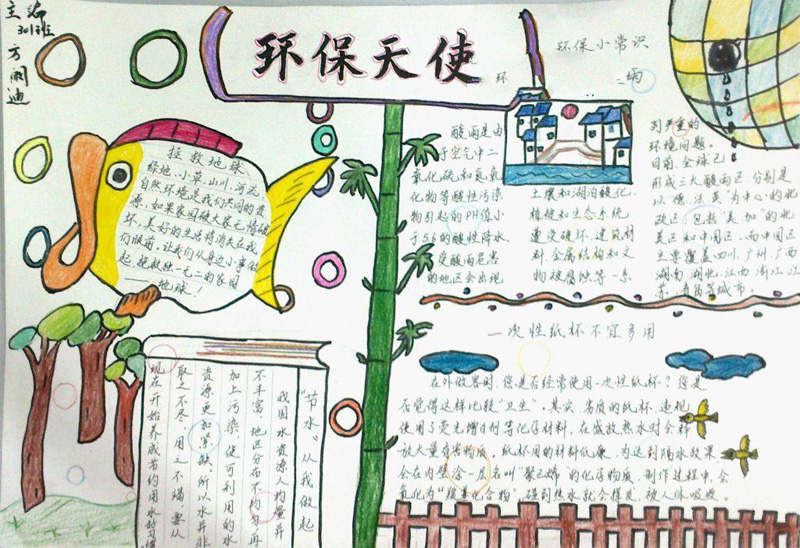 主编
301班
方
迪
环保天使
环保小常识
拯救地球
绿地、小草、山川、河流
自然环境是我们共同的资
源,如果家园被大家无情破
坏,美好的生活将消失在我
们眼前,让我们从身边小事做
起,挽救独一无二的家园
——地球!
酸雨是由
于空气中二
氧化硫和氮氧
化物等酸性污染
物引起的PH值小
于5.6的酸性降水
受酸雨危害
的地区会出现
土壤和湖泊酸化,
植被和生态系统
遭受破坏,建筑材
料,金属结构和文
物被腐蚀等一系
列严重的
环境问题。
目前,全球已
形成三大酸雨区,分别是
以德、法、英"为中心"的北
欧区 包括"美、加"的北
美区和中国区,而中国区
主要覆盖四川、广州、广西
湖南、湖北、江西、浙江、江
苏、青岛等城市。
一次性纸杯不宜多用
在外做客时,您是否经常使用一次性纸杯?您是
否觉得这样比较"卫生"。其实,劣质的纸杯,违规
使用了荧光增白剂等化学材料,在盛放热水时会释
放大量有害物质。纸杯用的材料低廉,为达到隔水效果
会在内壁涂一层名叫"聚乙烯"的化学物质,制作过程中,会
氧化为"羰基化合物",碰到热水就会挥发,被人体吸收。
"节水"从我做起
我国水资源人均量并
不丰富,地区分布不均匀,再
加上污染,使可利用的水
资源更加紧缺,所以水并非
取之不尽,用之不竭,要从
现在开始养成节约用水的习惯